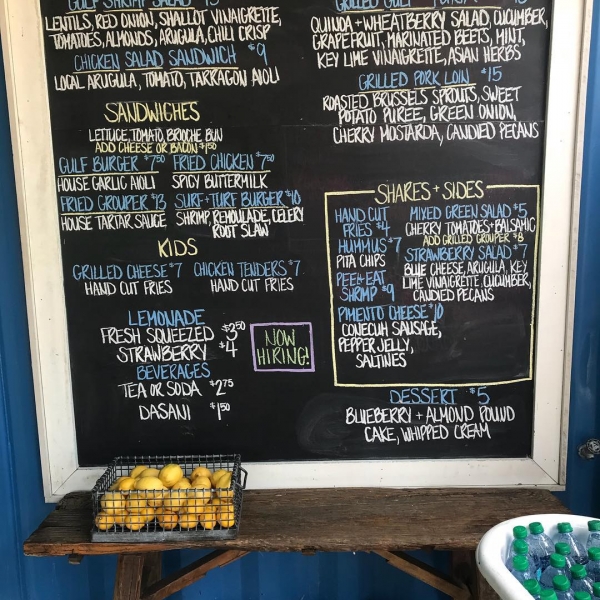 GULF SHRIMP SALAD
LENTILS, RED ONION, SHALLOT VINAIGRETTE,
TOMATOES, ALMONDS, ARUGULA, CHILI CRISP
CHICKEN SALAD SANDWICH $9
LOCAL ARUGULA, TOMATO, TARRAGON AIOLI
SANDWICHES
LETTUCE, TOMATO, BRIOCHE BUN
ADD CHEESE OR BACON $1.50
GULF BURGER $7.50 FRIED CHICKEN $7.50
HOUSE GARLIC AIOLI SPICY BUTTERMILK
FRIED GROUPER $13 SURF+TURF BURGER $10
HOUSE TARTAR SAUCE SHRIMP, REMOULADE, CELERY
ROOT SLAW
KIDS
GRILLED CHEESE $7 CHICKEN TENDERS $7
HAND CUT FRIES HAND CUT FRIES
LEMONADE
FRESH SQUEEZED $3.50
STRAWBERRY $4
BEVERAGES
TEA OR SODA $2.75
DASANI $1.50
NOW
HIRING!
GRILLED GULF
QUINOA + WHEATBERRY SALAD, CUCUMBER,
GRAPEFRUIT, MARINATED BEETS, MINT,
KEY LIME VINAIGRETTE, ASIAN HERBS
GRILLED PORK LOIN $15
ROASTED BRUSSELS SPROUTS, SWEET
POTATO PUREE, GREEN ONION,
CHERRY MOSTARDA, CANDIED PECANS
SHARES + SIDES
HAND CUT
FRIES $4
HUMMUS $7
PITA CHIPS
PEEL+EAT
SHRIMP $9
PIMENTO CHEESE $10
CONECUH SAUSAGE,
PEPPER JELLY,
SALTINES
MIXED GREEN SALAD $5
CHERRY TOMATOES + BALSAMIC
ADD GRILLED GROUPER $8
STRAWBERRY SALAD $7
BLUE CHEESE, ARUGULA, KEY
LIME VINAIGRETTE, CUCUMBER,
CANDIED PECANS
DESSERT $5
BLUEBERRY + ALMOND POUND
CAKE, WHIPPED CREAM